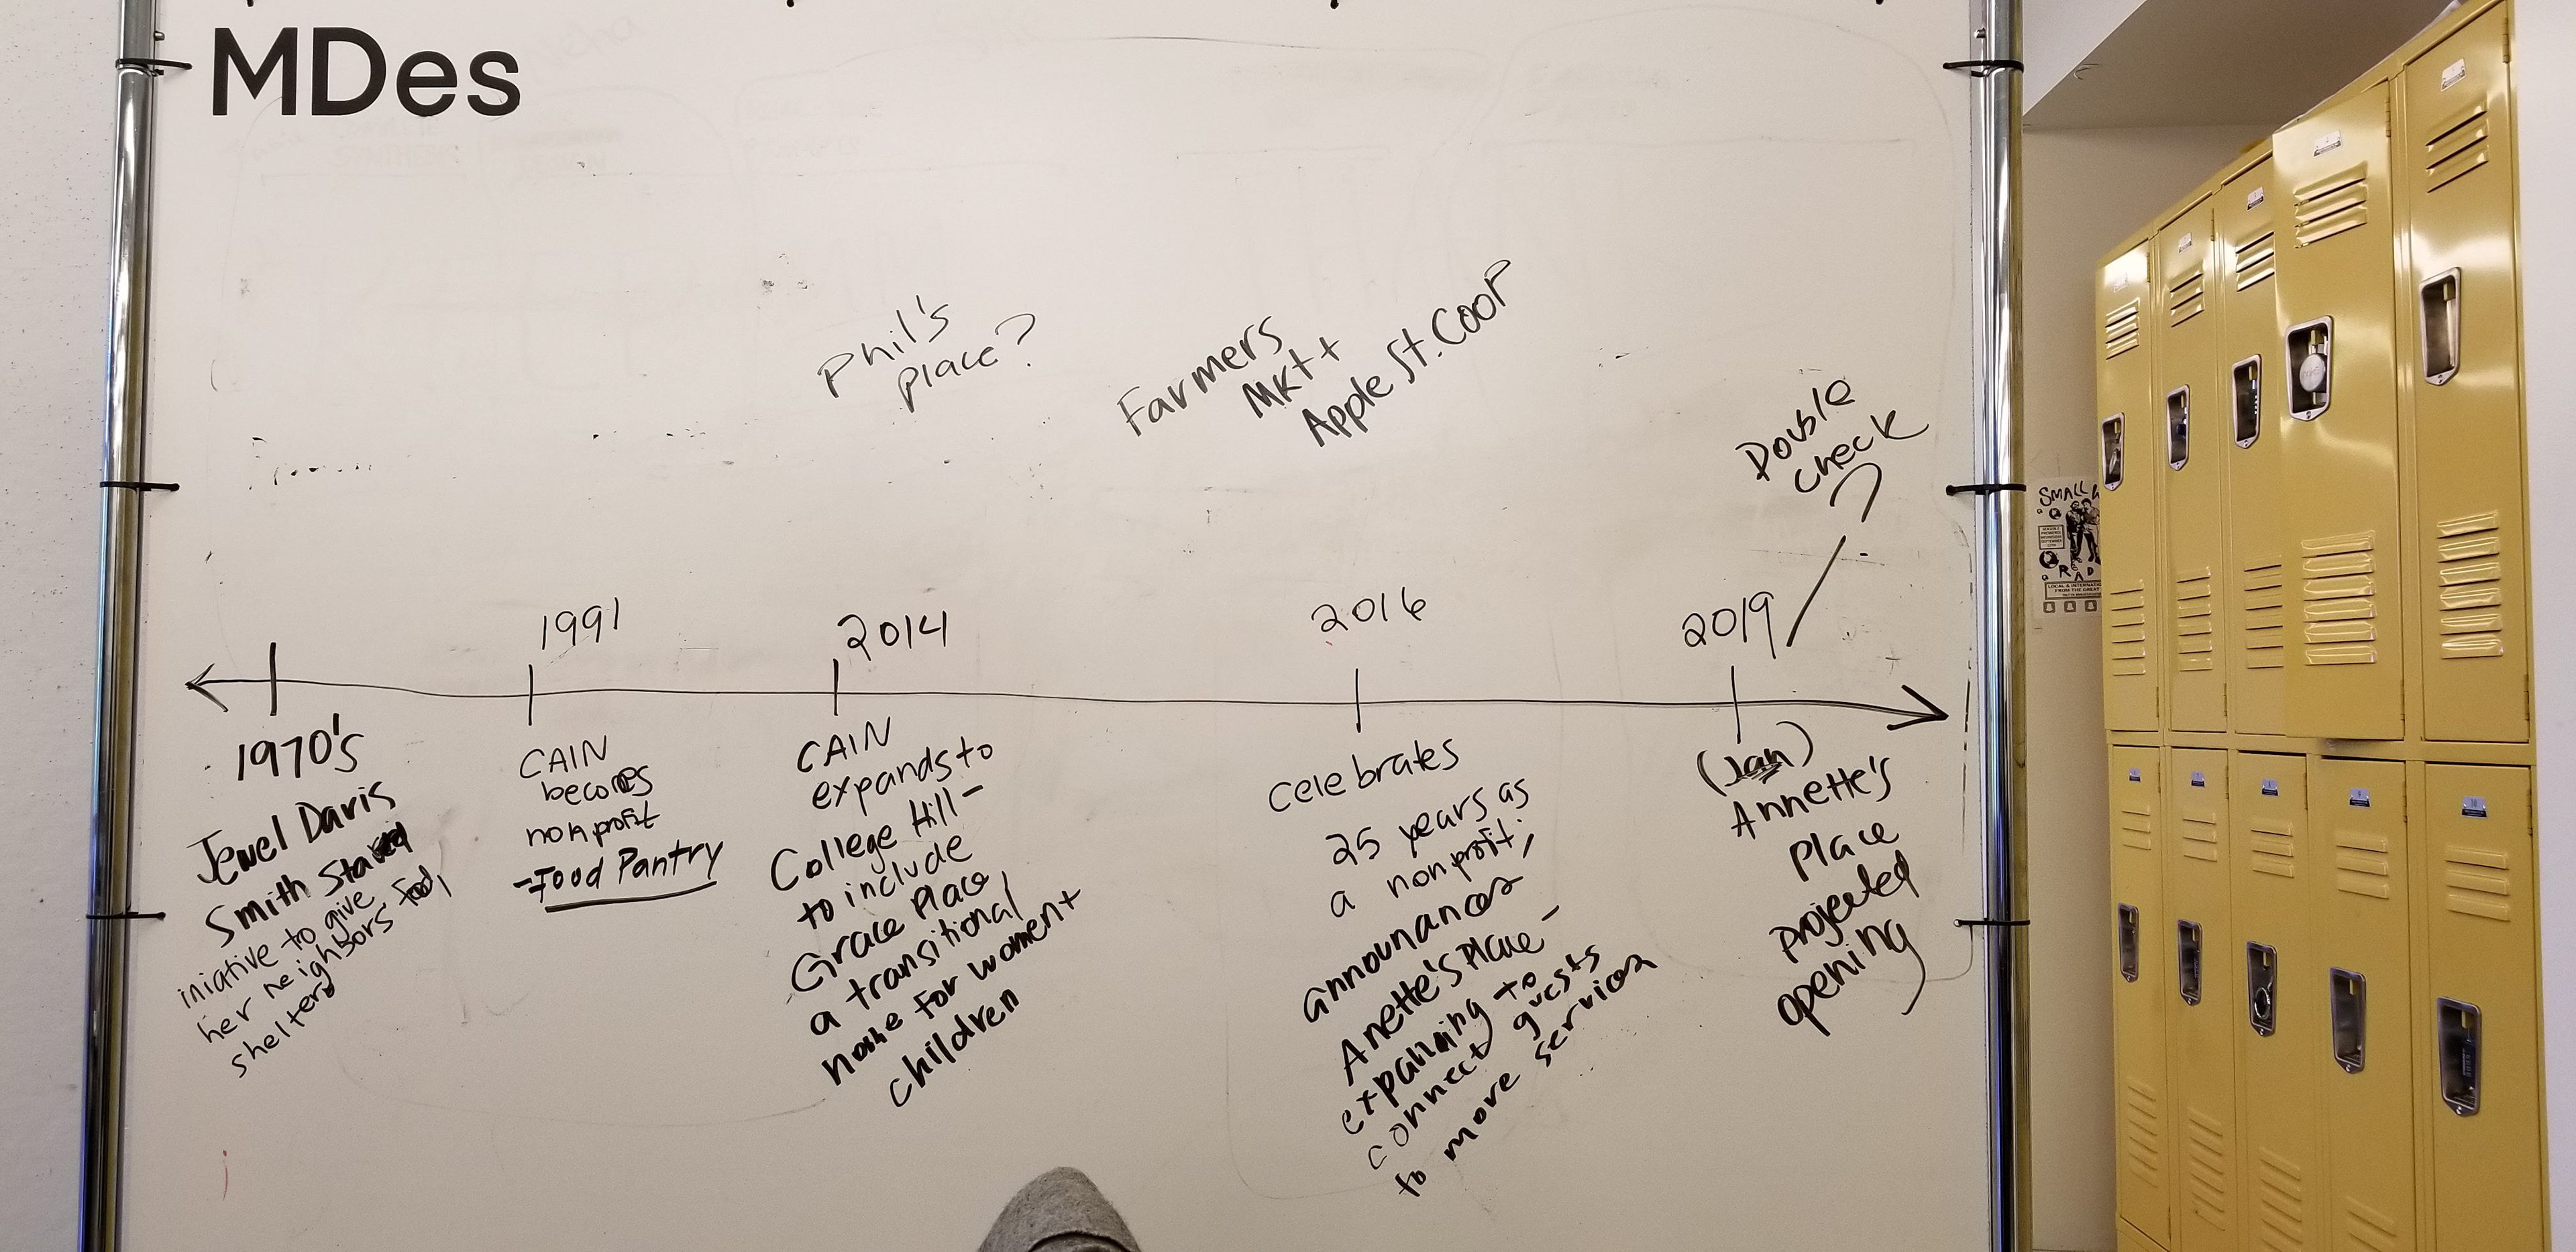 MDes
Phil's
place?
Farmers
Mkt +
Apple St. Coop
Double
check
?
1991
2014
2016
2019
1970's
Jewel Davis
Smith Started
iniative to give
her neighbors food,
shelter
CAIN
becomes
nonprofit
-Food Pantry
CAIN
expands to
College Hill-
to include
Grace Place,
a transitional
home for women +
children
celebrates
25 years as
a nonprofit;
announces
Anette's Place-
expanding to
connect guests
to more services
(Jan)
Annette's
Place
projected
opening
SMALL
RAD
LOCAL & INTERNATIO
FROM THE GREAT